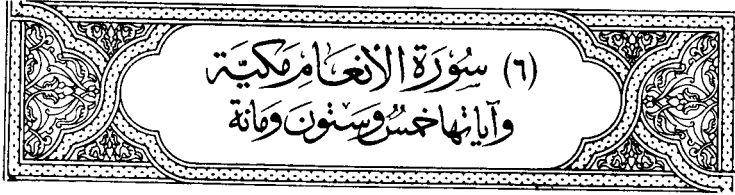 (٦) سُورَة الأنعَامِ مَكيَّة
وآياتها خمسٌ وَستون وَمائة